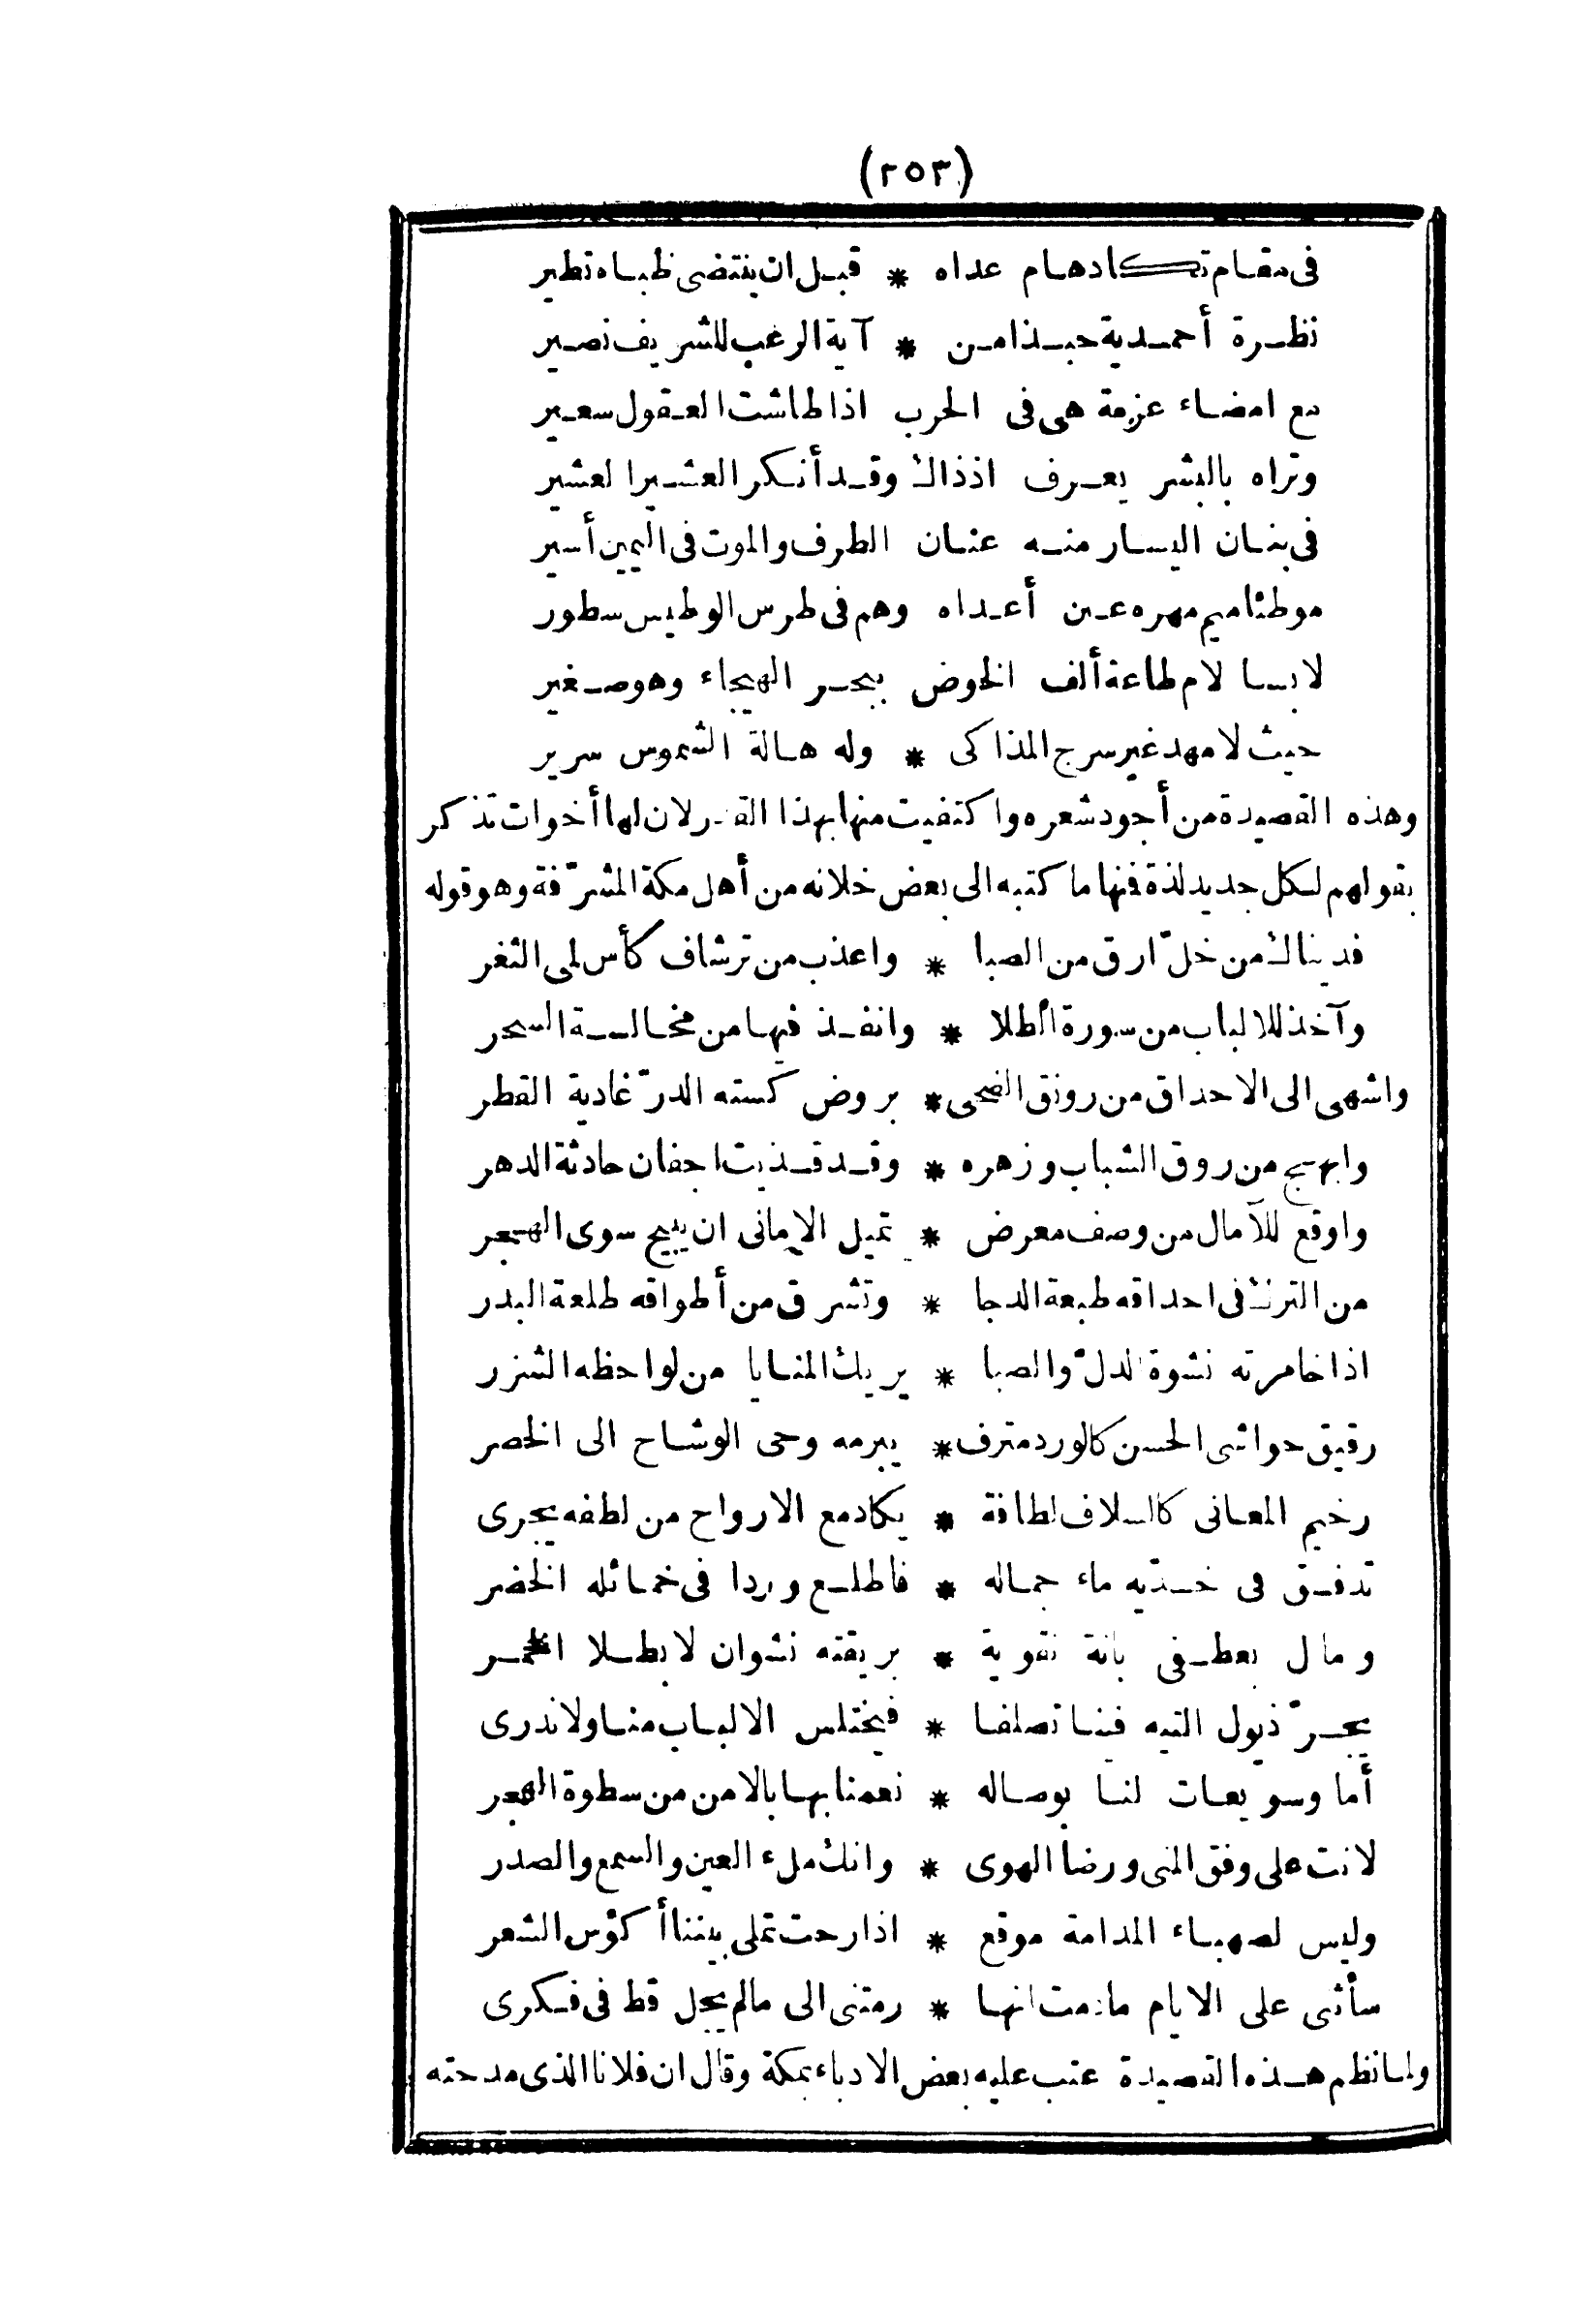 (٢٥٣)
فى مقام تكادهام عداه * قبل ان ينتضى ظباه تطير
نظرة أحمدية حبذا من * آية الرعب للشريف نصير
مع امضاء عزمة هى فى الحرب اذا طاشت العقول سعير
وتراه بالبشر يعرف اذذاك وقد أنكر العشير العشير
فى بنان اليسار منه عنان الطرف والموت فى اليمين أسير
موطئا ميم مهره عين أعداه وهم فى طرس الوطيس سطور
لابسا لام طاعة ألف الخوض ببحر الهيجاء وهو صغير
حيث لا مهد غير سرج المذاكى * وله هالة الشموس سرير
وهذه القصيدة من أجود شعره واكتفيت منها بهذا القدر لان لها أخوات تذكر
بقولهم لكل جديد لذة فمنها ما كتبه الى بعض خلانه من أهل مكة المشرّفة وهو قوله
فديناك من خلّ ارق من الصبا * واعذب من ترشاف كأس لمى الثغر
وآخذ للالباب من سورة الطلا * وانفذ فيها من مخالسة السحر
واشهى الى الاحداق من رونق الضحى * بروض كسته الدرّ غادية القطر
وابهج من روق الشباب وزهره * وقد قذيت اجفان حادثة الدهر
واوقع للآمال من وصف معرض * تميل الامانى ان يبيح سوى الهجر
من الترك فى احداقه طبعة الدجا * وتشرق من أطواقه طلعة البدر
اذا خامرته نشوة الدلّ والصبا * يريك المنايا من لواحظه الشزر
رقيق حواشى الحسن كالورد مترف * يبرمه وحى الوشاح الى الخصر
رخيم المعانى كالسلاف لطافة * يكاد مع الارواح من لطفه يجرى
تدفق فى خدّيه ماء جماله * فاطلع وردا فى خمائله الخضر
ومال بعطفى بانة نقوية * بريقته نشوان لا بطلا الخمر
يجرّ ذيول التيه فينا تصلفا * فيختلس الالباب منا ولا ندرى
أما وسويعات لنا بوصاله * نعمنا بها بالامن من سطوة الهجر
لانت على وفق المنى ورضا الهوى * وانك ملء العين والسمع والصدر
وليس لصهباء المدامة موقع * اذا رحت تملى بيننا أكؤس الشعر
سأثنى على الايام مادمت انها * رمتنى الى مالم يجل قط فى فكرى
ولما نظم هذه القصيدة عتب عليه بعض الادباء بمكة وقال ان فلانا الذى مدحته